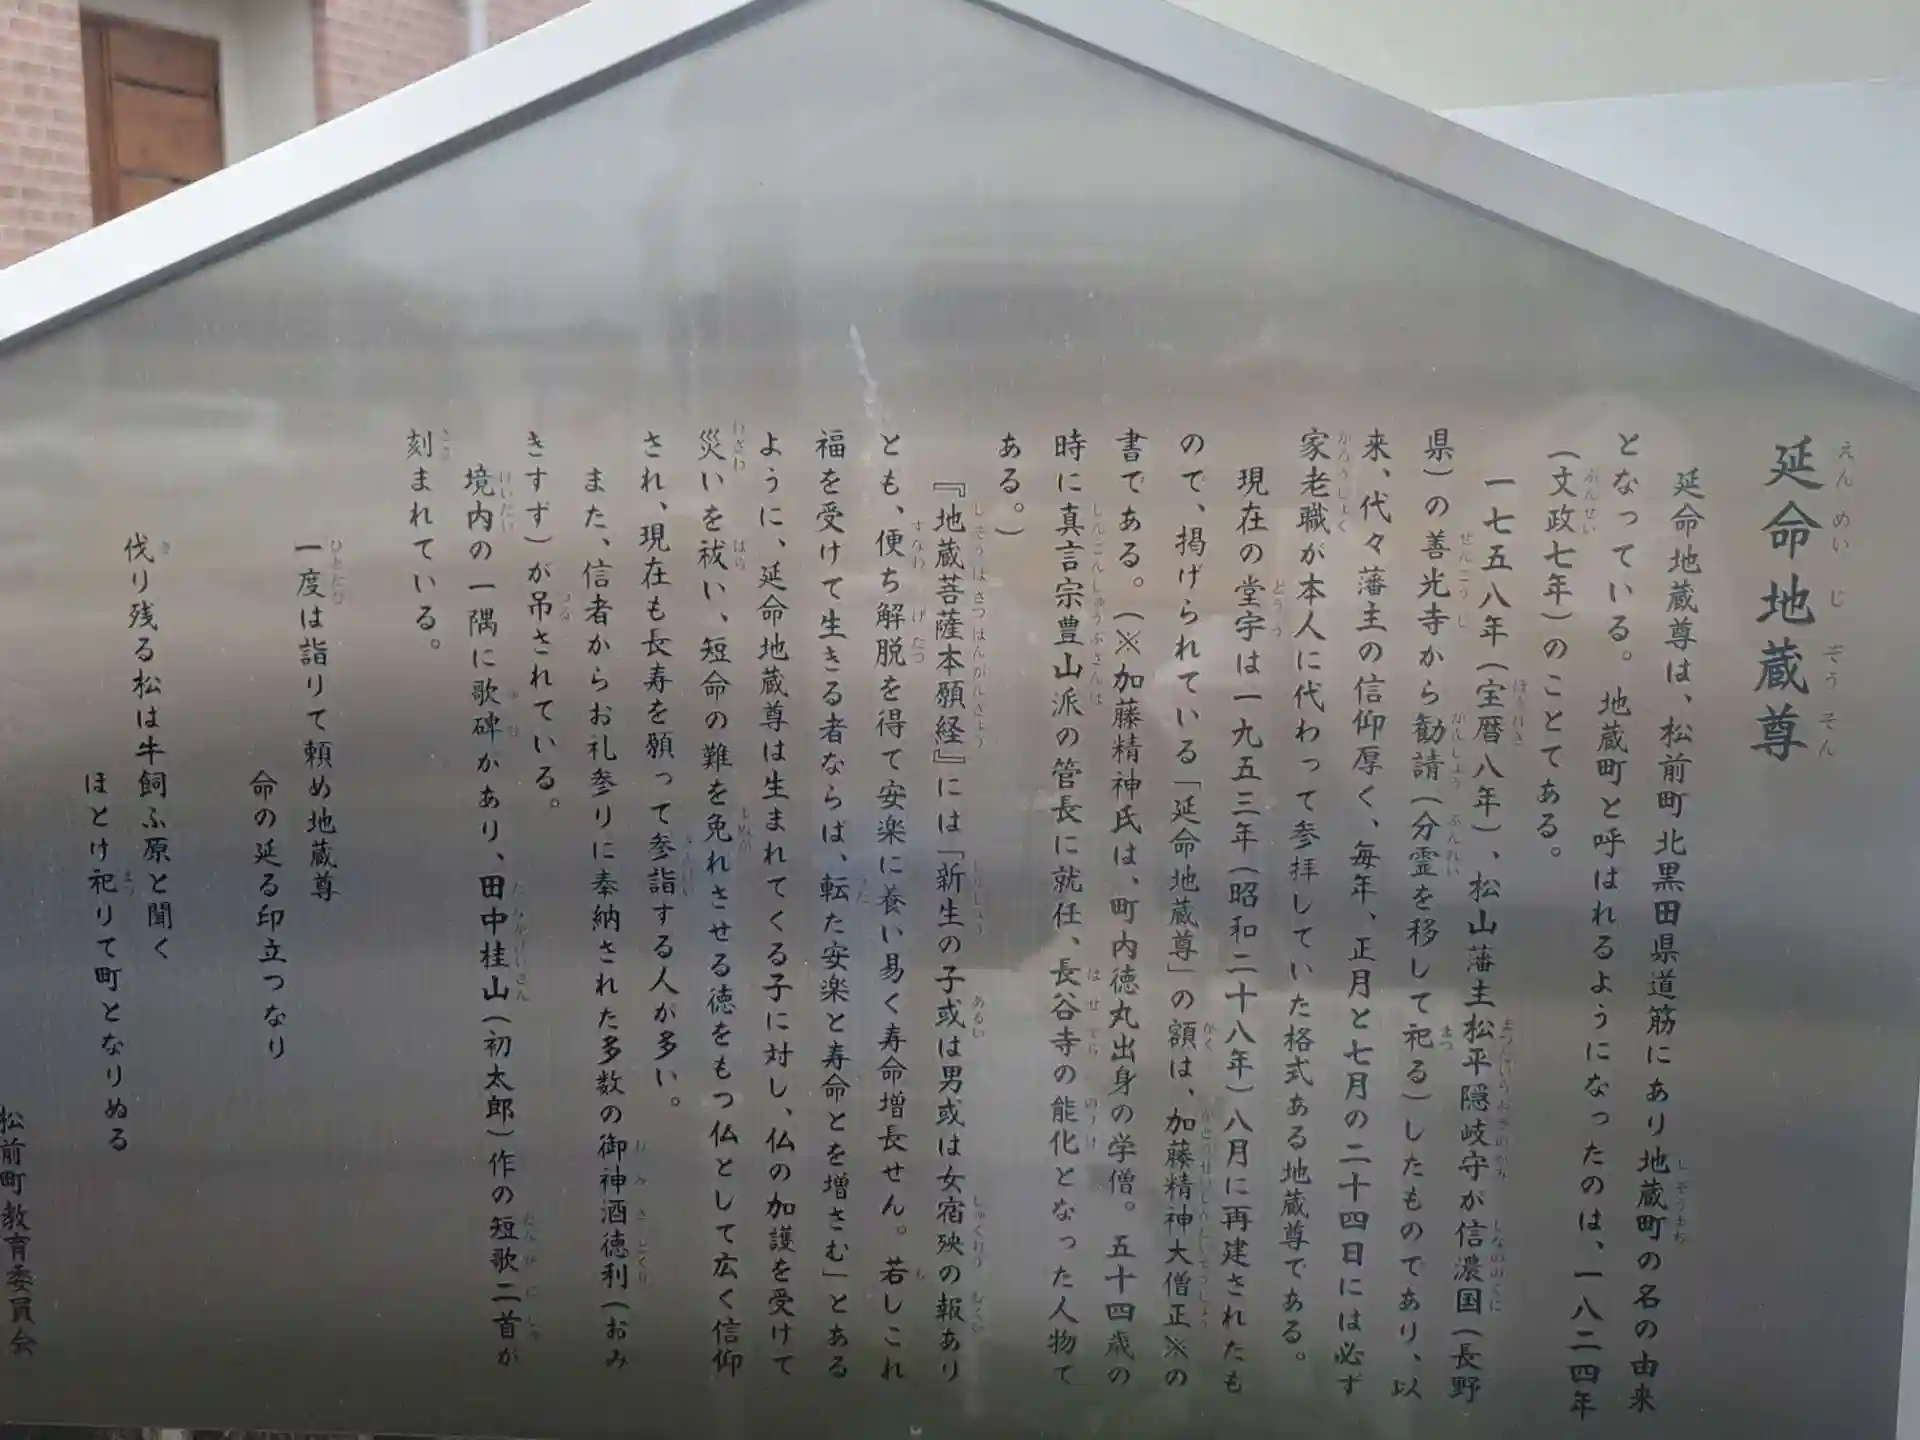 延命地蔵尊
延命地蔵尊は、松前町北黒田県道筋にあり地蔵町の名の由来
となっている。地蔵町と呼ばれるようになったのは、一八二四年
(文政七年)のことである。
一七五八年(宝暦八年)、松山藩主松平隠岐守が信濃国(長野
県)の善光寺から勧請(分霊を移して祀る)したものであり、以
来、代々藩主の信仰厚く、毎年、正月と七月の二十四日には必ず
家老職が本人に代わって参拝していた格式ある地蔵尊である。
現在の堂宇は一九五三年(昭和二十八年)八月に再建されたも
ので、掲げられている「延命地蔵尊」の額は、加藤精神大僧正※の
書である。(※加藤精神氏は、町内徳丸出身の学僧。五十四歳の
時に真言宗豊山派の管長に就任、長谷寺の能化となった人物で
ある。)
『地蔵菩薩本願経』には「新生の子或は男或は女宿殃の報あり
とも、便ち解脱を得て安楽に養い易く寿命増長せん。若しこれ
福を受けて生きる者ならば、転た安楽と寿命とを増さむ」とある
ように、延命地蔵尊は生まれてくる子に対し、仏の加護を受けて
災いを祓い、短命の難を免れさせる徳をもつ仏として広く信仰
され、現在も長寿を願って参詣する人が多い。
また、信者からお礼参りに奉納された多数の御神酒徳利(おみ
きすず)が吊されている。
境内の一隅に歌碑があり、田中桂山(初太郎)作の短歌二首が
刻まれている。
一度は詣りて頼め地蔵尊
命の延る印立つなり
伐り残る松は牛飼ふ原と聞く
ほとけ祀りて町となりぬる
松前町教育委員会